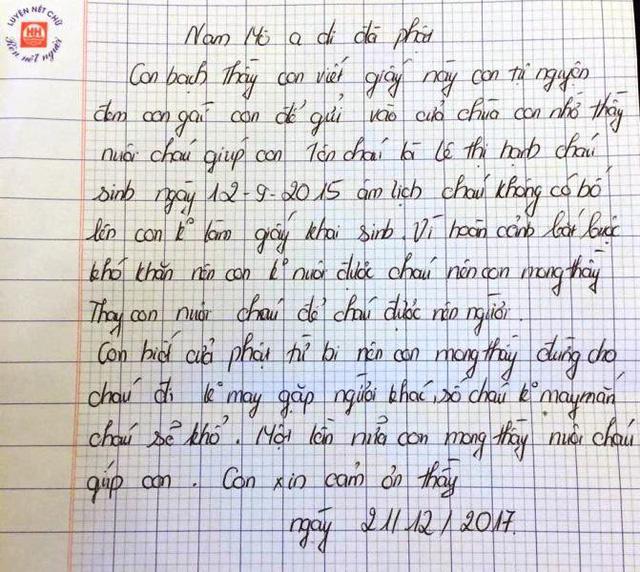 LUYỆN NÉT CHỮ
HH
Rèn nết người
Nam Mô a di đà phật
Con bạch Thầy con viết giấy này con tự nguyện
đem con gái con để gửi vào cửa chùa con nhờ thầy
nuôi cháu giúp con Tên cháu là Lê thị hạnh cháu
sinh ngày 12-9-2015 âm lịch cháu không có bố
lên con k° làm giấy khai sinh. Vì hoàn cảnh bắt buộc
khó khăn nên con k° nuôi được cháu nên con mong thầy
Thay con nuôi cháu để cháu được nên người.
Con biết cửa phật từ bi nên con mong thầy đừng cho
cháu đi k° may gặp người khác, số cháu k° may mắn
cháu sẽ khổ. Một lần nữa con mong thầy nuôi cháu
giúp con. Con xin cảm ơn thầy
ngày 21/12/2017.